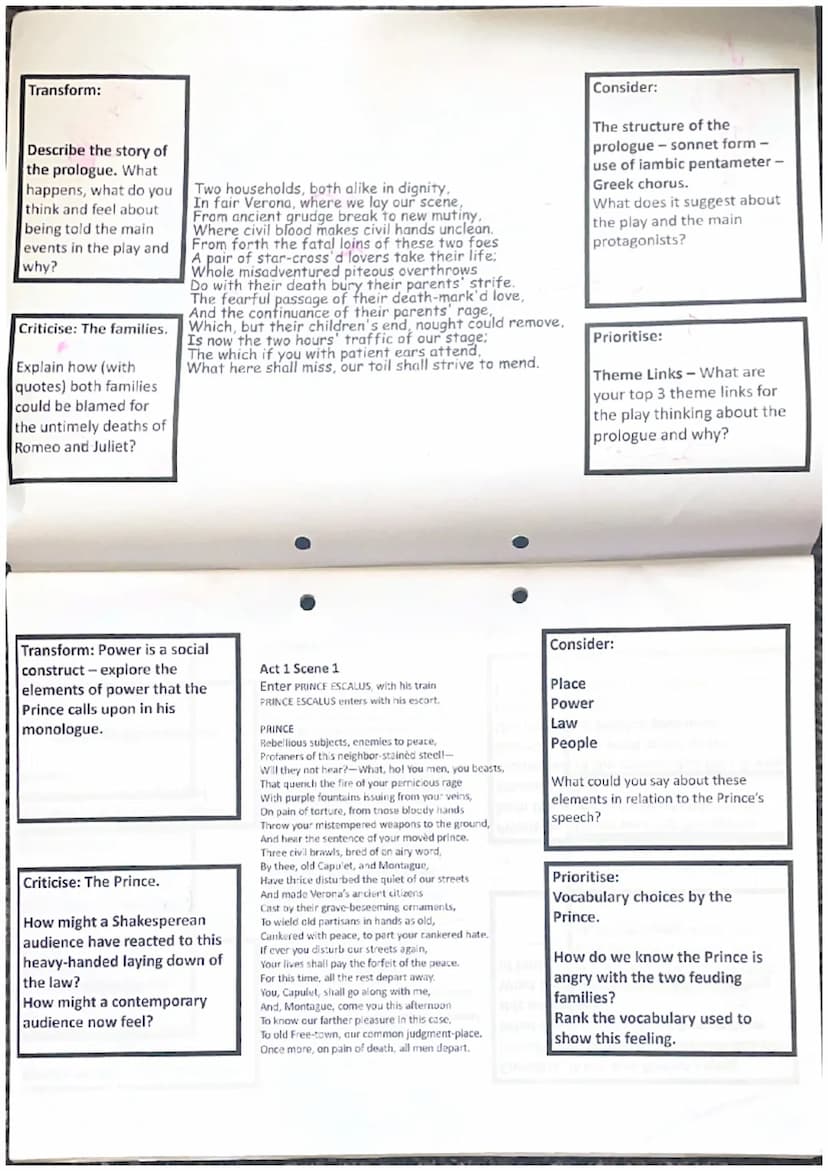 Transform:
Describe the story of
the prologue. What
happens, what do you
think and feel about
being told the main
events in the play and
why?
Criticise: The families.
Explain how (with
quotes) both families
could be blamed for
the untimely deaths of
Romeo and Juliet?
Two households, both alike in dignity,
In fair Verona, where we lay our scene,
From ancient grudge break to new mutiny,
Where civil blood makes civil hands unclean.
From forth the fatal loins of these two foes
A pair of star-cross'd lovers take their life;
Whole misadventured piteous overthrows
Do with their death bury their parents' strife.
The fearful passage of their death-mark'd love,
And the continuance of their parents' rage,
Which, but their children's end, nought could remove,
Is now the two hours' traffic of our stage;
The which if you with patient ears attend,
What here shall miss, our toil shall strive to mend.
Consider:
The structure of the
prologue – sonnet form –
use of iambic pentameter –
Greek chorus.
What does it suggest about
the play and the main
protagonists?
Prioritise:
Theme Links – What are
your top 3 theme links for
the play thinking about the
prologue and why?
Transform: Power is a social
construct – explore the
elements of power that the
Prince calls upon in his
monologue.
Criticise: The Prince.
How might a Shakesperean
audience have reacted to this
heavy-handed laying down of
the law?
How might a contemporary
audience now feel?
Act 1 Scene 1
Enter PRINCE ESCALUS, with his train
PRINCE ESCALUS enters with his escort.
PRINCE
Rebellious subjects, enemies to peace,
Profaners of this neighbor-stainèd steel!—
Will they not hear?—What, ho! You men, you beasts,
That quench the fire of your pernicious rage
With purple fountains issuing from your veins,
On pain of torture, from those bloody hands
Throw your mistempered weapons to the ground,
And hear the sentence of your movèd prince.
Three civil brawls, bred of an airy word,
By thee, old Capulet, and Montague,
Have thrice disturbed the quiet of our streets
And made Verona's ancient citizens
Cast by their grave-beseeming ornaments,
To wield old partisans in hands as old,
Cankered with peace, to part your cankered hate.
If ever you disturb our streets again,
Your lives shall pay the forfeit of the peace.
For this time, all the rest depart away.
You, Capulet, shall go along with me,
And, Montague, come you this afternoon
To know our farther pleasure in this case,
To old Free-town, our common judgment-place.
Once more, on pain of death, all men depart.
Consider:
Place
Power
Law
People
What could you say about these
elements in relation to the Prince's
speech?
Prioritise:
Vocabulary choices by the
Prince.
How do we know the Prince is
angry with the two feuding
families?
Rank the vocabulary used to
show this feeling.